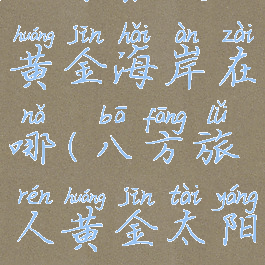 huáng jīn hǎi àn zài
黄金海岸在
nǎ bā fāng lǚ
哪(八方旅
rén huáng jīn tài yáng
人黄金太阳